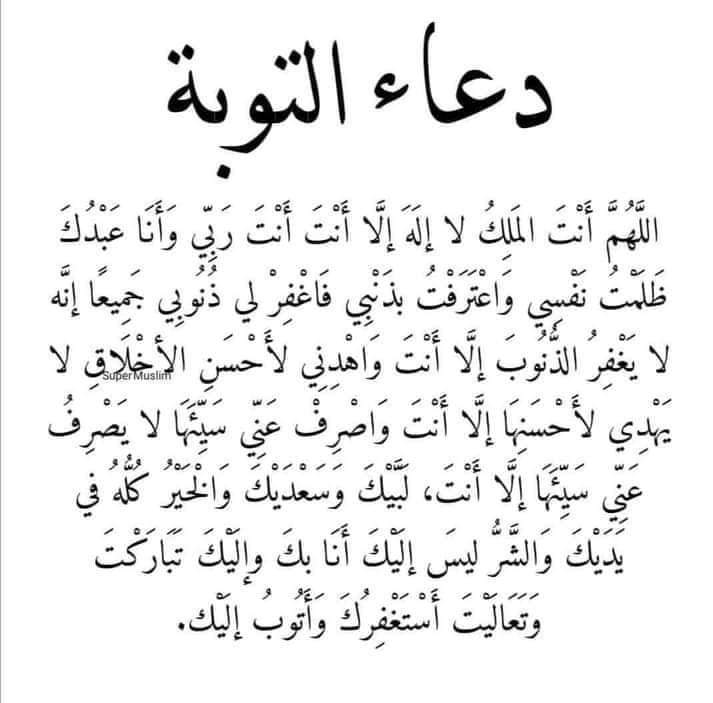 دعاء التوبة
اللَّهُمَّ أَنْتَ المَلِكُ لا إلَهَ إلَّا أَنْتَ أَنْتَ رَبِّي وَأَنَا عَبْدُكَ
ظَلَمْتُ نَفْسِي وَاعْتَرَفْتُ بذَنْبِي فَاغْفِرْ لي ذُنُوبِي جَمِيعًا إنَّه
لا يَغْفِرُ الذُّنُوبَ إلَّا أَنْتَ وَاهْدِنِي لأَحْسَنِ الأخْلَاقِ لا
SuperMuslim
يَهْدِي لأَحْسَنِهَا إلَّا أَنْتَ وَاصْرِفْ عَنِّي سَيِّئَهَا لا يَصْرِفُ
عَنِّي سَيِّئَهَا إلَّا أَنْتَ، لَبَّيْكَ وَسَعْدَيْكَ وَالْخَيْرُ كُلُّهُ في
يَدَيْكَ وَالشَّرُّ ليسَ إلَيْكَ أَنَا بكَ وإلَيْكَ تَبَارَكْتَ
وَتَعَالَيْتَ أَسْتَغْفِرُكَ وَأَتُوبُ إلَيْك.